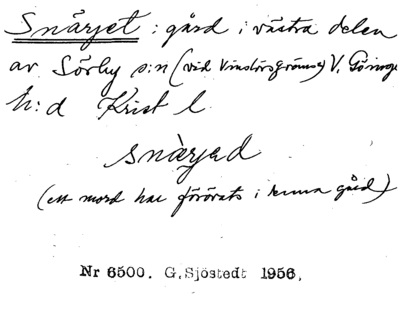 Snärjet : gård i västra delen
av Sörby s:n (vid Vinslövsgränsen) V. Göinge
h:d Krist l
snärjed
(ett mord har förövats i denna gård)
Nr 6500. G. Sjöstedt 1956.